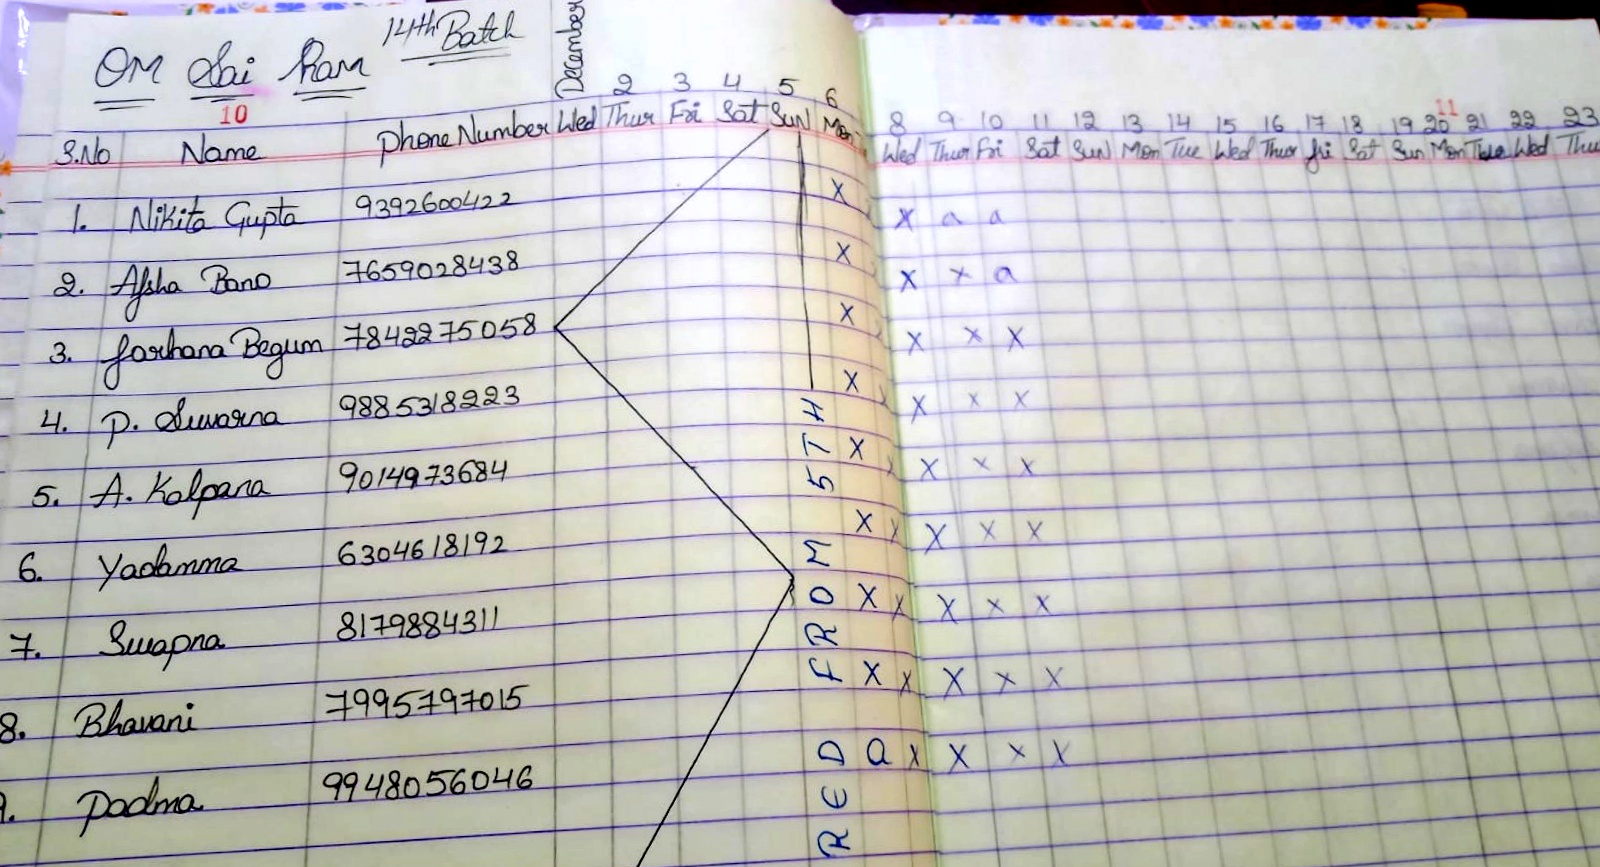 OM Sai Ram 14th Batch
December
10
11
2 3 4 5 6 8 9 10 11 12 13 14 15 16 17 18 19 20 21 22 23
S.No Name Phone Number Wed Thur Fri Sat Sun Mon Wed Thur Fri Sat Sun Mon Tue Wed Thur Fri Sat Sun Mon Tue Wed Thu
1. Nikita Gupta 9392600422 x x a a
2. Afsha Bano 7659028438 x x x a
3. Farhana Begum 7842275058 x x x x
4. P. Suvarna 9885318223 x x x x
5. A. Kalpana 9014973684 x x x x x
6. Yadamma 6304618192 x x x x x
7. Swapna 8179884311 x x x x x
8. Bhavani 7995797015 x x x x x
9. Padma 9948056046 a x x x x
RED FROM 5TH